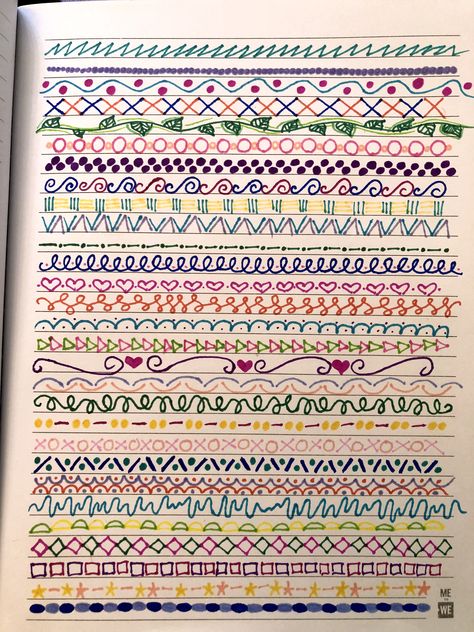 ME
WE